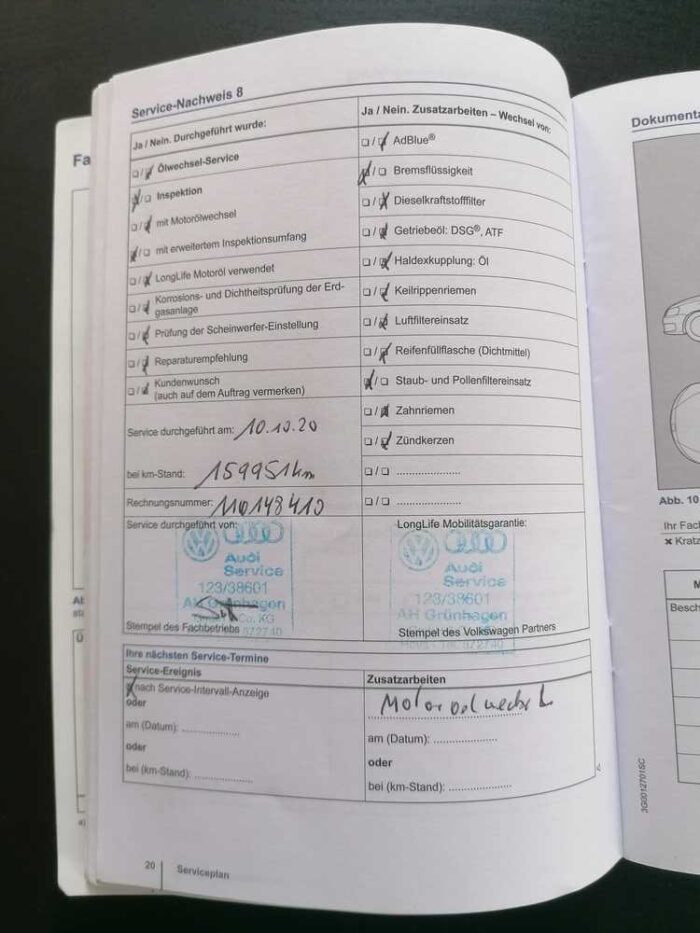 Service-Nachweis 8
Ja / Nein. Durchgeführt wurde:
❑ / ❑ Ölwechsel-Service
❑ / ❑ Inspektion
❑ / ❑ mit Motorölwechsel
❑ / ❑ mit erweitertem Inspektionsumfang
❑ / ❑ LongLife Motoröl verwendet
❑ / ❑ Korrosions- und Dichtheitsprüfung der Erd-
gasanlage
❑ / ❑ Prüfung der Scheinwerfer-Einstellung
❑ / ❑ Reparaturempfehlung
❑ / ❑ Kundenwunsch
(auch auf dem Auftrag vermerken)
Service durchgeführt am: 10.10.20
bei km-Stand: 159951 km
Rechnungsnummer: 110148410
Service durchgeführt von:
Audi
Service
123/38601
AH Grünhagen
Co. KG
572740
Stempel des Fachbetriebs
Ja / Nein. Zusatzarbeiten – Wechsel von:
❑ / ❑ AdBlue®
❑ / ❑ Bremsflüssigkeit
❑ / ❑ Dieselkraftstofffilter
❑ / ❑ Getriebeöl: DSG®, ATF
❑ / ❑ Haldexkupplung: Öl
❑ / ❑ Keilrippenriemen
❑ / ❑ Luftfiltereinsatz
❑ / ❑ Reifenfüllflasche (Dichtmittel)
❑ / ❑ Staub- und Pollenfiltereinsatz
❑ / ❑ Zahnriemen
❑ / ❑ Zündkerzen
❑ / ❑ .....................
❑ / ❑ .....................
LongLife Mobilitätsgarantie:
Audi
Service
123/38601
AH Grünhagen
572740
Stempel des Volkswagen Partners
Ihre nächsten Service-Termine
Service-Ereignis
nach Service-Intervall-Anzeige
oder
am (Datum): ..................
oder
bei (km-Stand): ..................
Zusatzarbeiten
Motoroelwechsel
am (Datum): ....................
oder
bei (km-Stand): ....................
20
Serviceplan
Fa
Dokumenta
Abb. 10
Ihr Fac
✖ Kratz
M
Besch
3G0012701SC